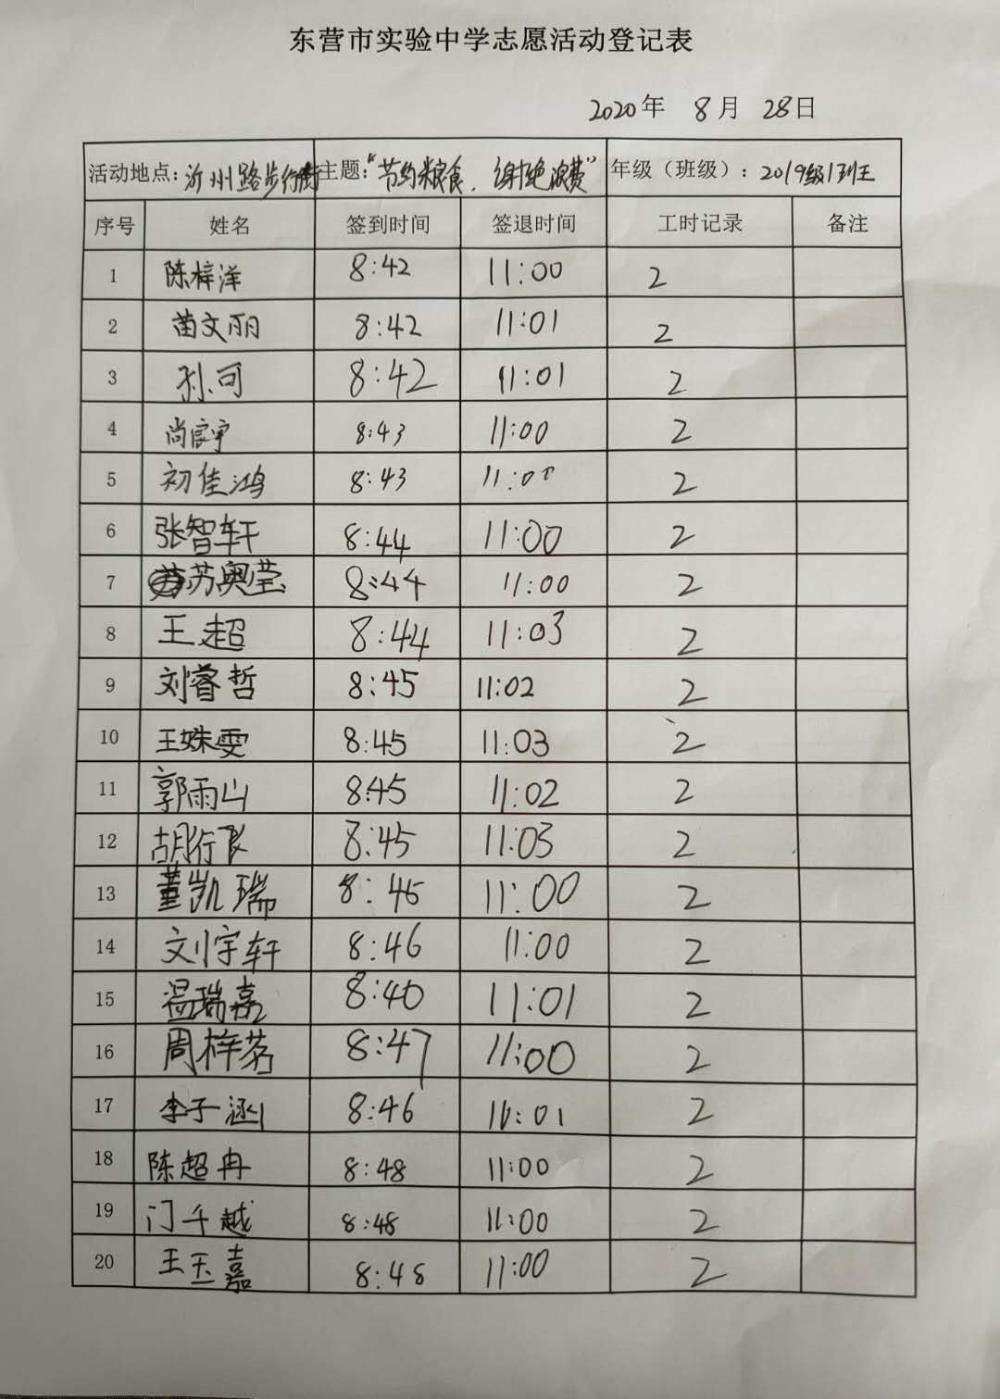 东营市实验中学志愿活动登记表
2020年 8月 28日
活动地点：沂州路步行街 主题："节约粮食，谢绝浪费" 年级（班级）：2019级1班王
序号 姓名 签到时间 签退时间 工时记录 备注
1 陈梓洋 8:42 11:00 2
2 苗文丽 8:42 11:01 2
3 孙可 8:42 11:01 2
4 尚宸宇 8:43 11:00 2
5 初佳鸿 8:43 11:00 2
6 张智轩 8:44 11:00 2
7 苏奥莹 8:44 11:00 2
8 王超 8:44 11:03 2
9 刘睿哲 8:45 11:02 2
10 王姝雯 8:45 11:03 2
11 郭雨山 8:45 11:02 2
12 胡行飞 8:45 11:03 2
13 董凯瑞 8:46 11:00 2
14 刘宇轩 8:46 11:00 2
15 温瑞嘉 8:46 11:01 2
16 周梓茗 8:47 11:00 2
17 李子涵 8:46 11:01 2
18 陈超冉 8:48 11:00 2
19 门千越 8:48 11:00 2
20 王玉嘉 8:48 11:00 2